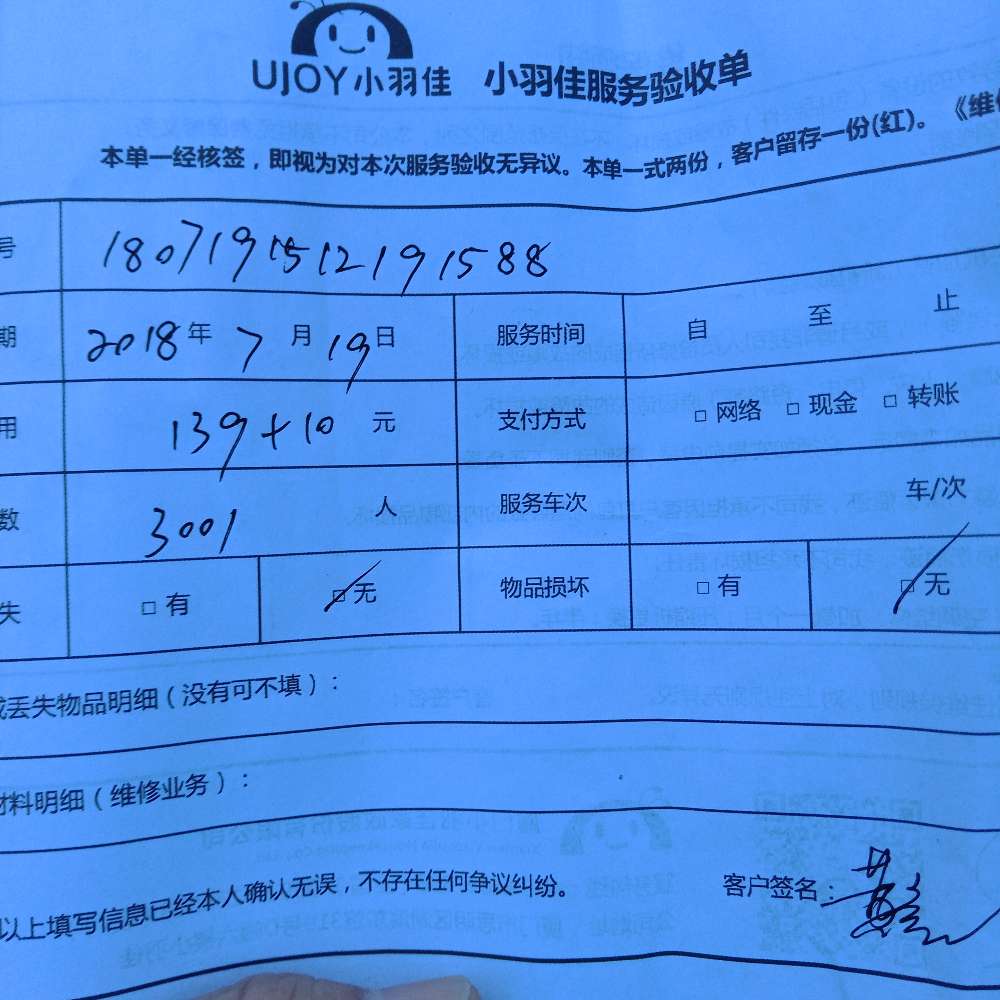 UJOY小羽佳 小羽佳服务验收单
本单一经核签，即视为对本次服务验收无异议。本单一式两份，客户留存一份(红)。《维
号 1807191512191588
期 2018年 7 月 19日 服务时间 自 至 止
用 139+10 元 支付方式 □网络 □现金 □转账
数 3001 人 服务车次 车/次
失 □有 □无 物品损坏 □有 □无
丢失物品明细（没有可不填）：
材料明细（维修业务）：
以上填写信息已经本人确认无误，不存在任何争议纠纷。 客户签名：